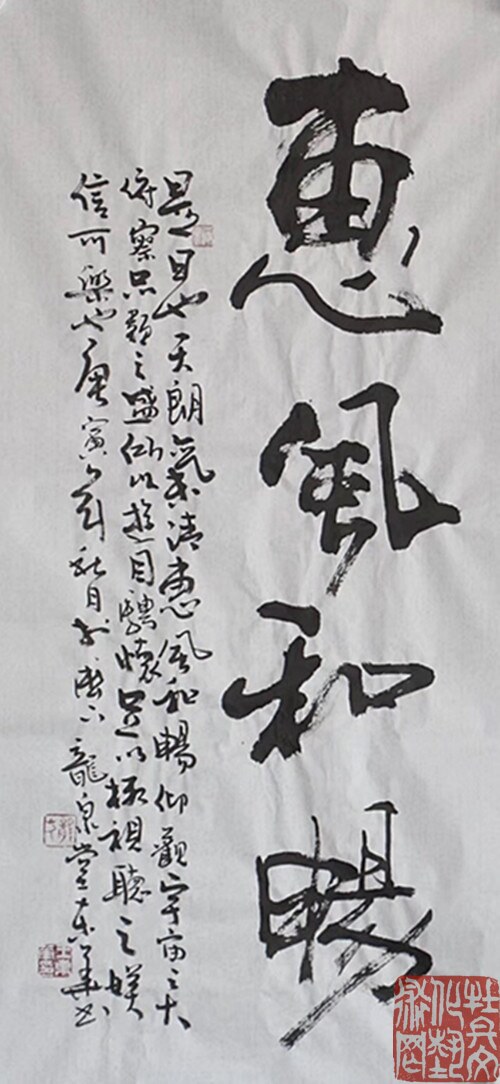 惠風和暢
是日也天朗氣清惠風和暢仰觀宇宙之大
俯察品類之盛所以遊目騁懷足以極視聽之娱
信可樂也庚寅年秋月於歷下龍泉堂東華書